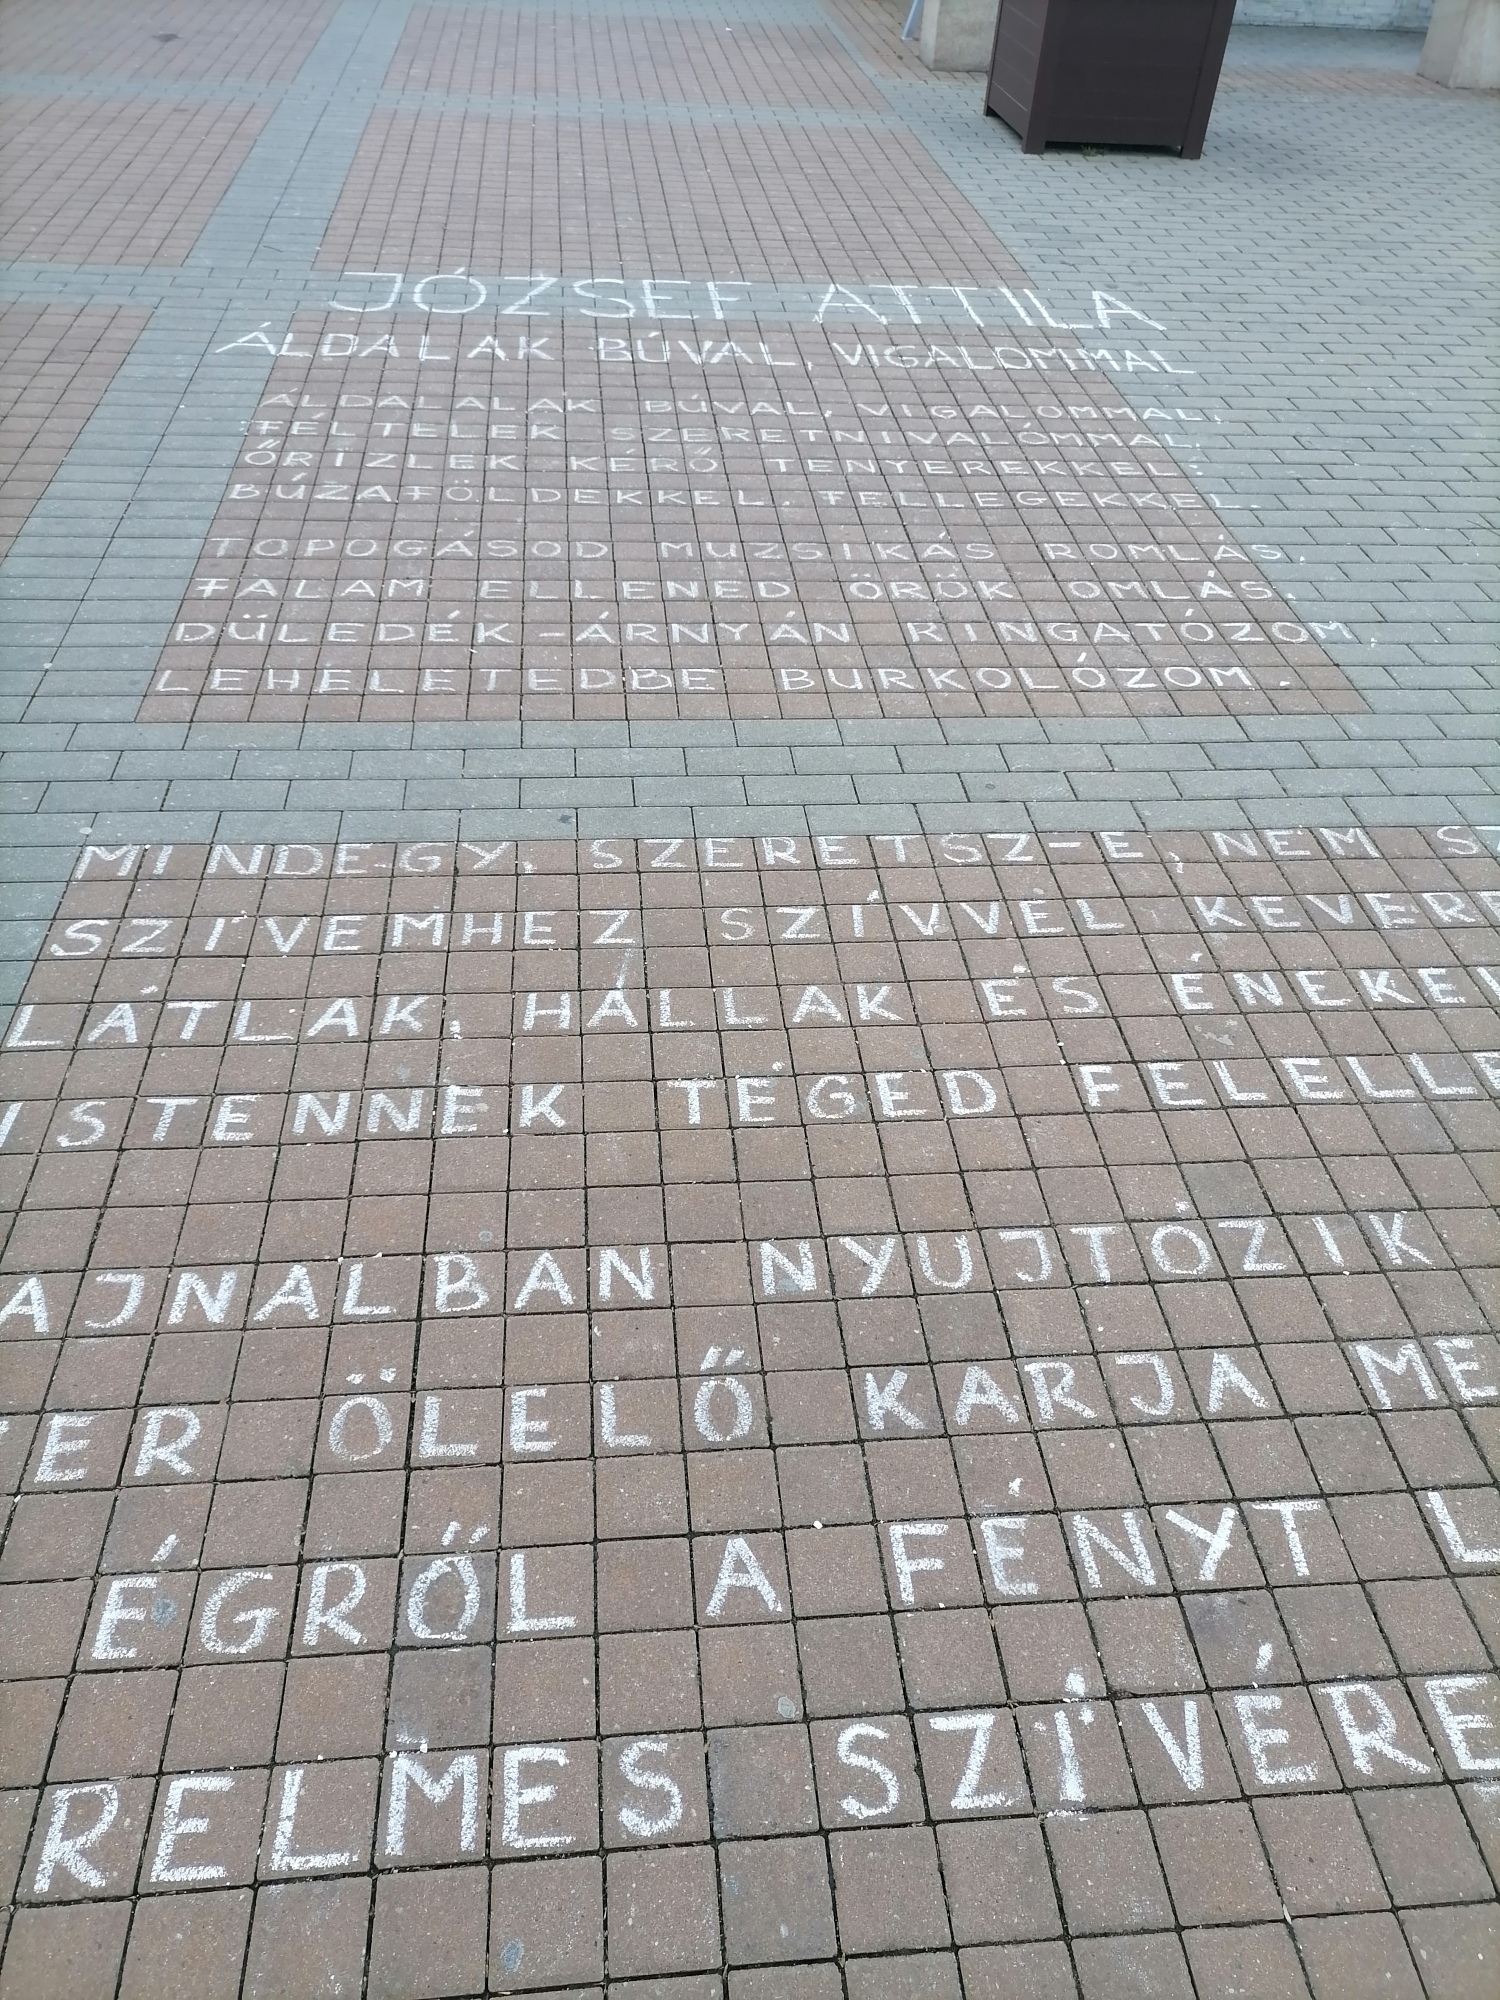 JÓZSEF ATTILA
ÁLDALAK BÚVAL, VIGALOMMAL
ÁLDALALAK BÚVAL, VIGALOMMAL,
FÉLTELEK SZERETNIVALÓMMAL,
ŐRÍZLEK KÉRŐ TENYEREKKEL:
BÚZAFÖLDEKKEL, FELLEGEKKEL.
TOPOGÁSOD MUZSIKÁS ROMLÁS,
FALAM ELLENED ÖRÖK OMLÁS.
DŰLEDÉK-ÁRNYÁN RINGATÓZOM
LEHELETEDBE BURKOLÓZOM.
MINDEGY, SZERETSZ-E, NEM S
SZÍVEMHEZ SZÍVVEL KEVERE
LÁTLAK, HALLAK ÉS ÉNEKEL
ISTENNEK TÉGED FELELLE
AJNALBAN NYUJTÓZIK
ER ÖLELŐ KARJA ME
ÉGRŐL A FÉNYT L
RELMES SZÍVÉRE